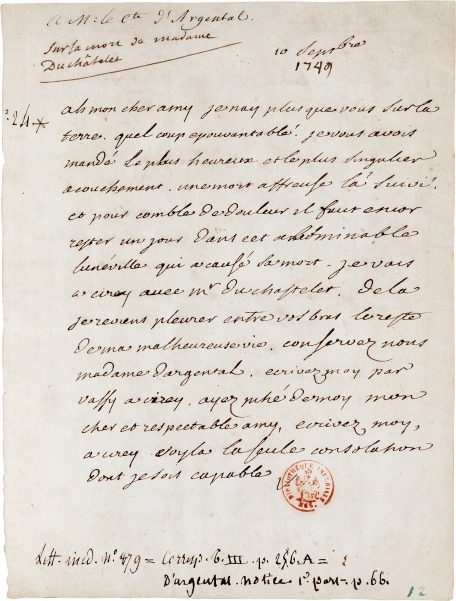 A Mr le Cte d'Argental.
Sur la mort de madame
Du châtelet
10 Septbre
1749
24 *
ah mon cher amy je nay plus que vous sur la
terre. quel coup epouvantable. je vous avois
mandé le plus heureux et le plus singulier
acouchement. une mort affreuse la suivi.
et pour comble de douleur il faut encor
rester un jour dans cet abominable
lunéville qui a causé sa mort. je vais
a cirey avec mr du chastelet. de la
je reviens pleurer entre vos bras le reste
de ma malheureuse vie. conservez nous
madame d'argental. ecrivez moy par
vassy a cirey. ayez pitié de moy mon
cher et respectable amy, ecrivez moy,
a cirey voyla la seule consolation
dont je sois capable
BIBLIOTHEQUE IMPERIALE
MSS.
Litt. ined. No. 479 = Corresp. t. III. p. 256. A =
D'argental. notice 1e part. p. 66.
12